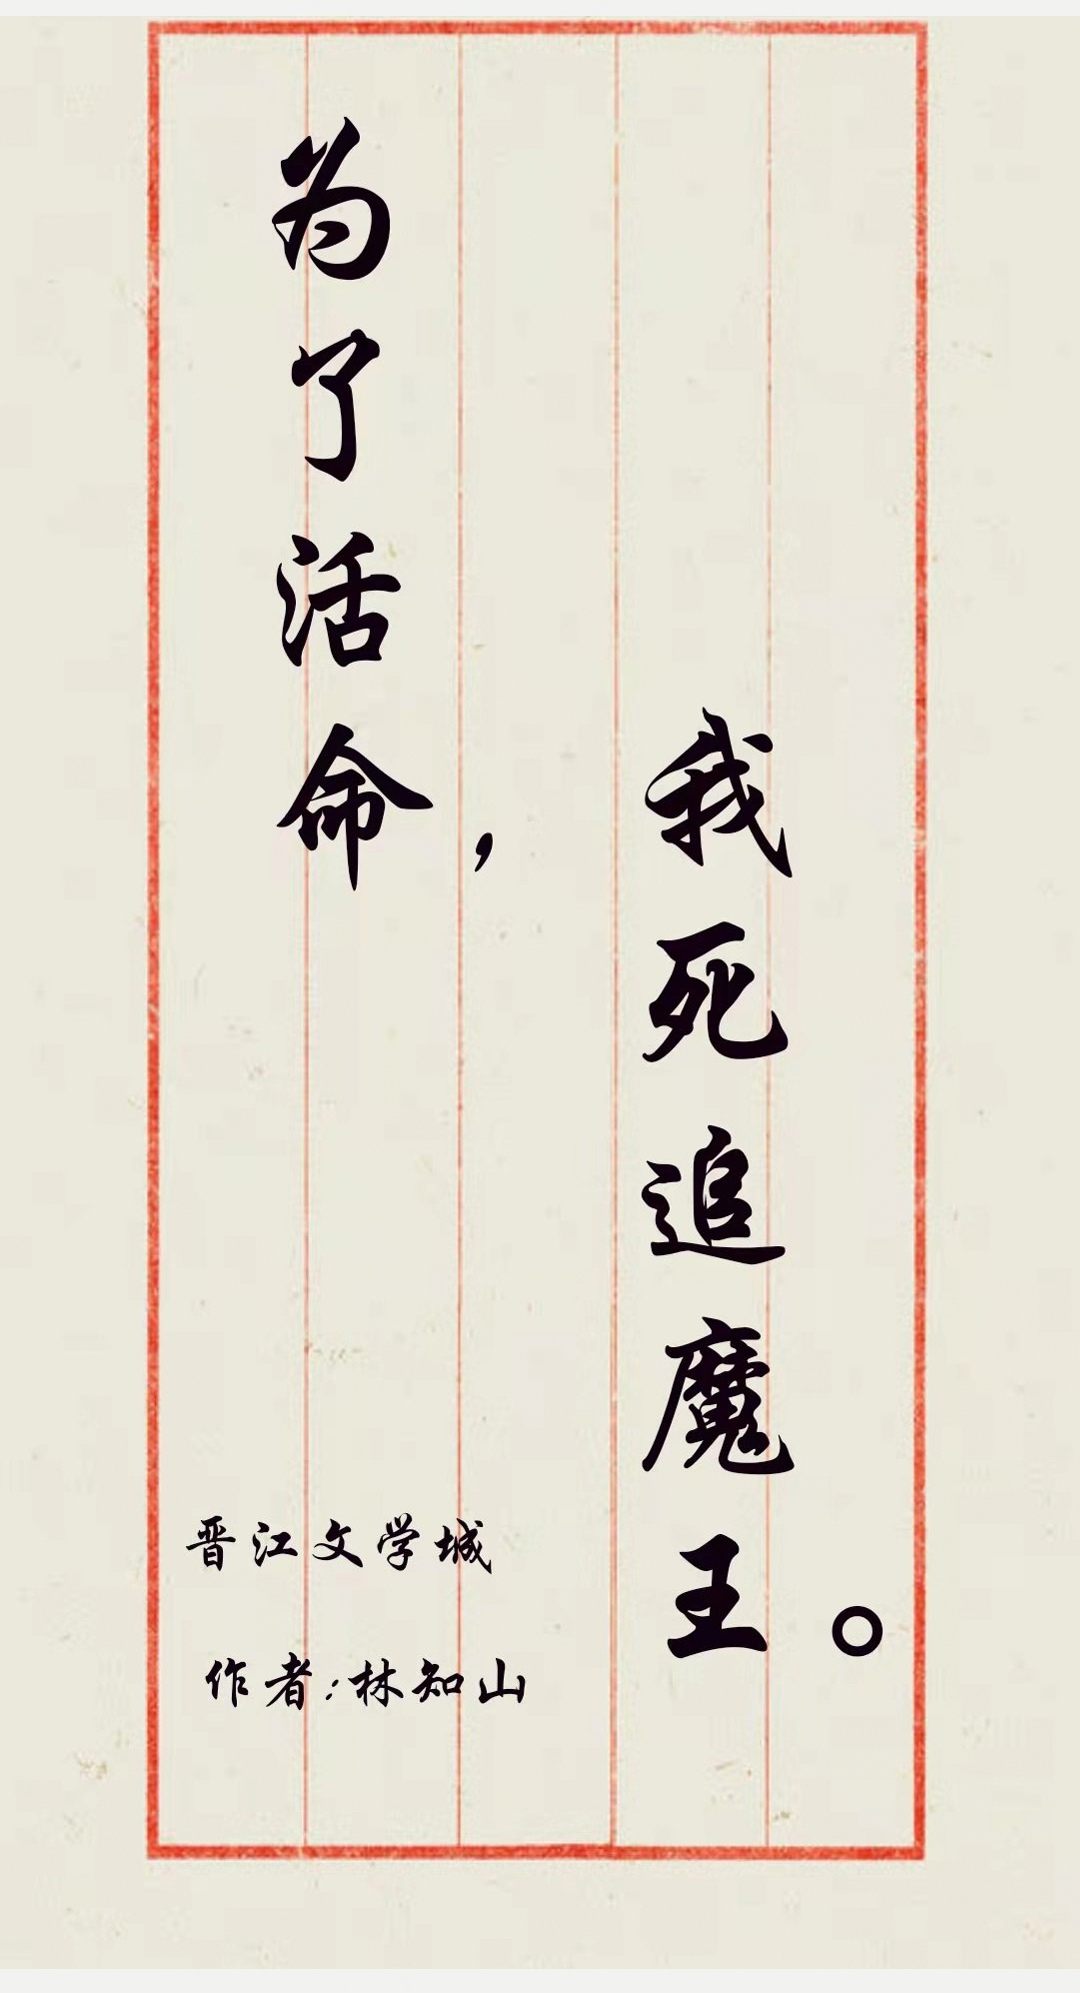 为了活命，
我死追魔王。
晋江文学城
作者:林知山